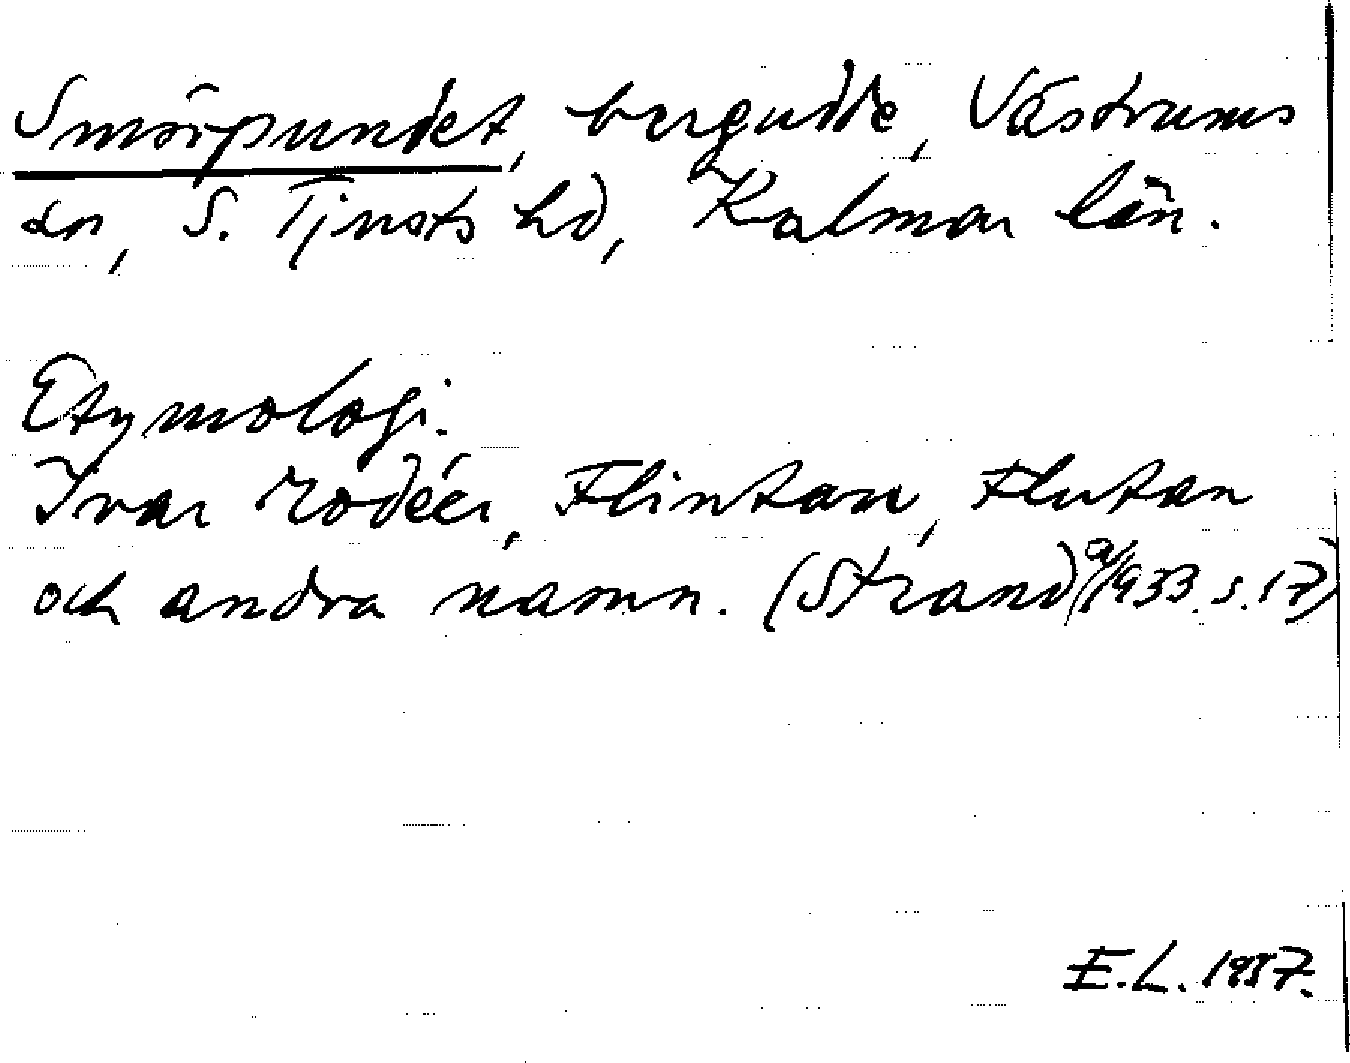 Smörpundet, bergudde, Västrums
sn, S. Tjusts hd, Kalmar län.
Etymologi.
Ivar Modéer, Flintan, Flutan
och andra namn. (Strand) 1933. s. 17)
E.L. 1957.